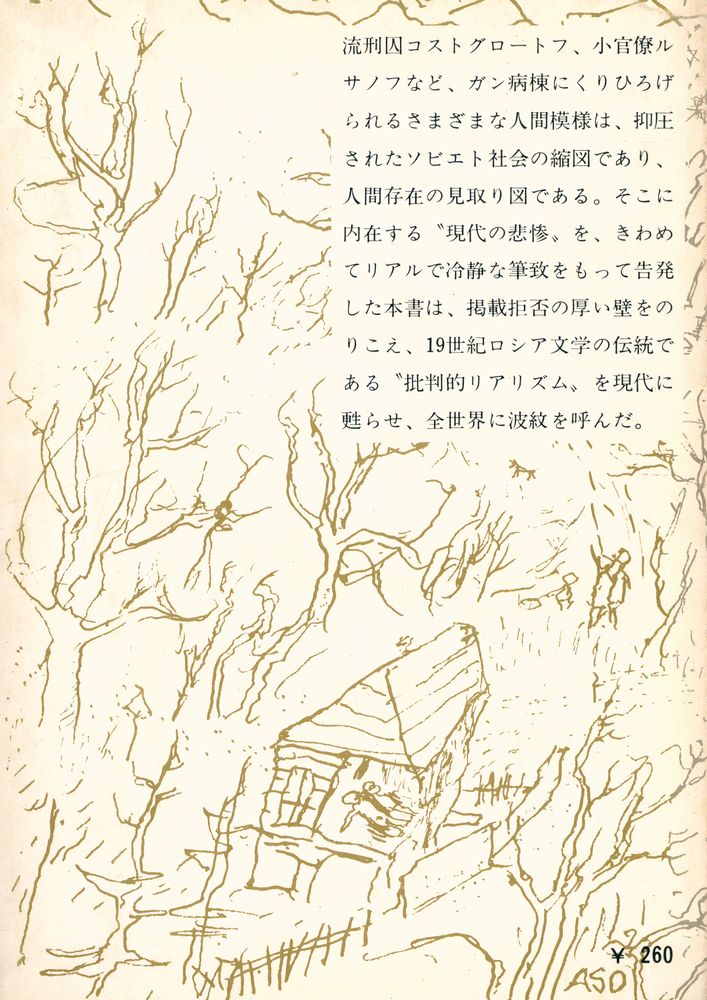 流刑囚コストグロートフ、小官僚ル
サノフなど、ガン病棟にくりひろげ
られるさまざまな人間模様は、抑圧
されたソビエト社会の縮図であり、
人間存在の見取り図である。そこに
内在する〝現代の悲惨〟を、きわめ
てリアルで冷静な筆致をもって告発
した本書は、掲載拒否の厚い壁をの
りこえ、19世紀ロシア文学の伝統で
ある〝批判的リアリズム〟を現代に
甦らせ、全世界に波紋を呼んだ。
¥ 260
ASO